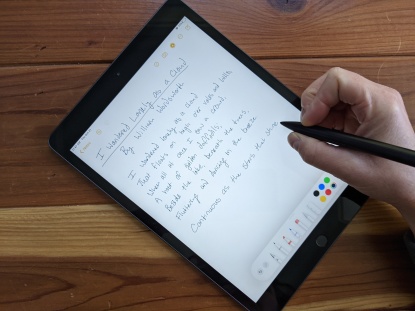 I Wandered Lonely As a Cloud
By William Wordsworth
I wandered lonely as a cloud
That floats on high o'er vales and hills,
When all at once I saw a crowd,
A host of golden daffodils,
Beside the lake, beneath the trees,
Fluttering and dancing in the breeze.
Continuous as the stars that shine